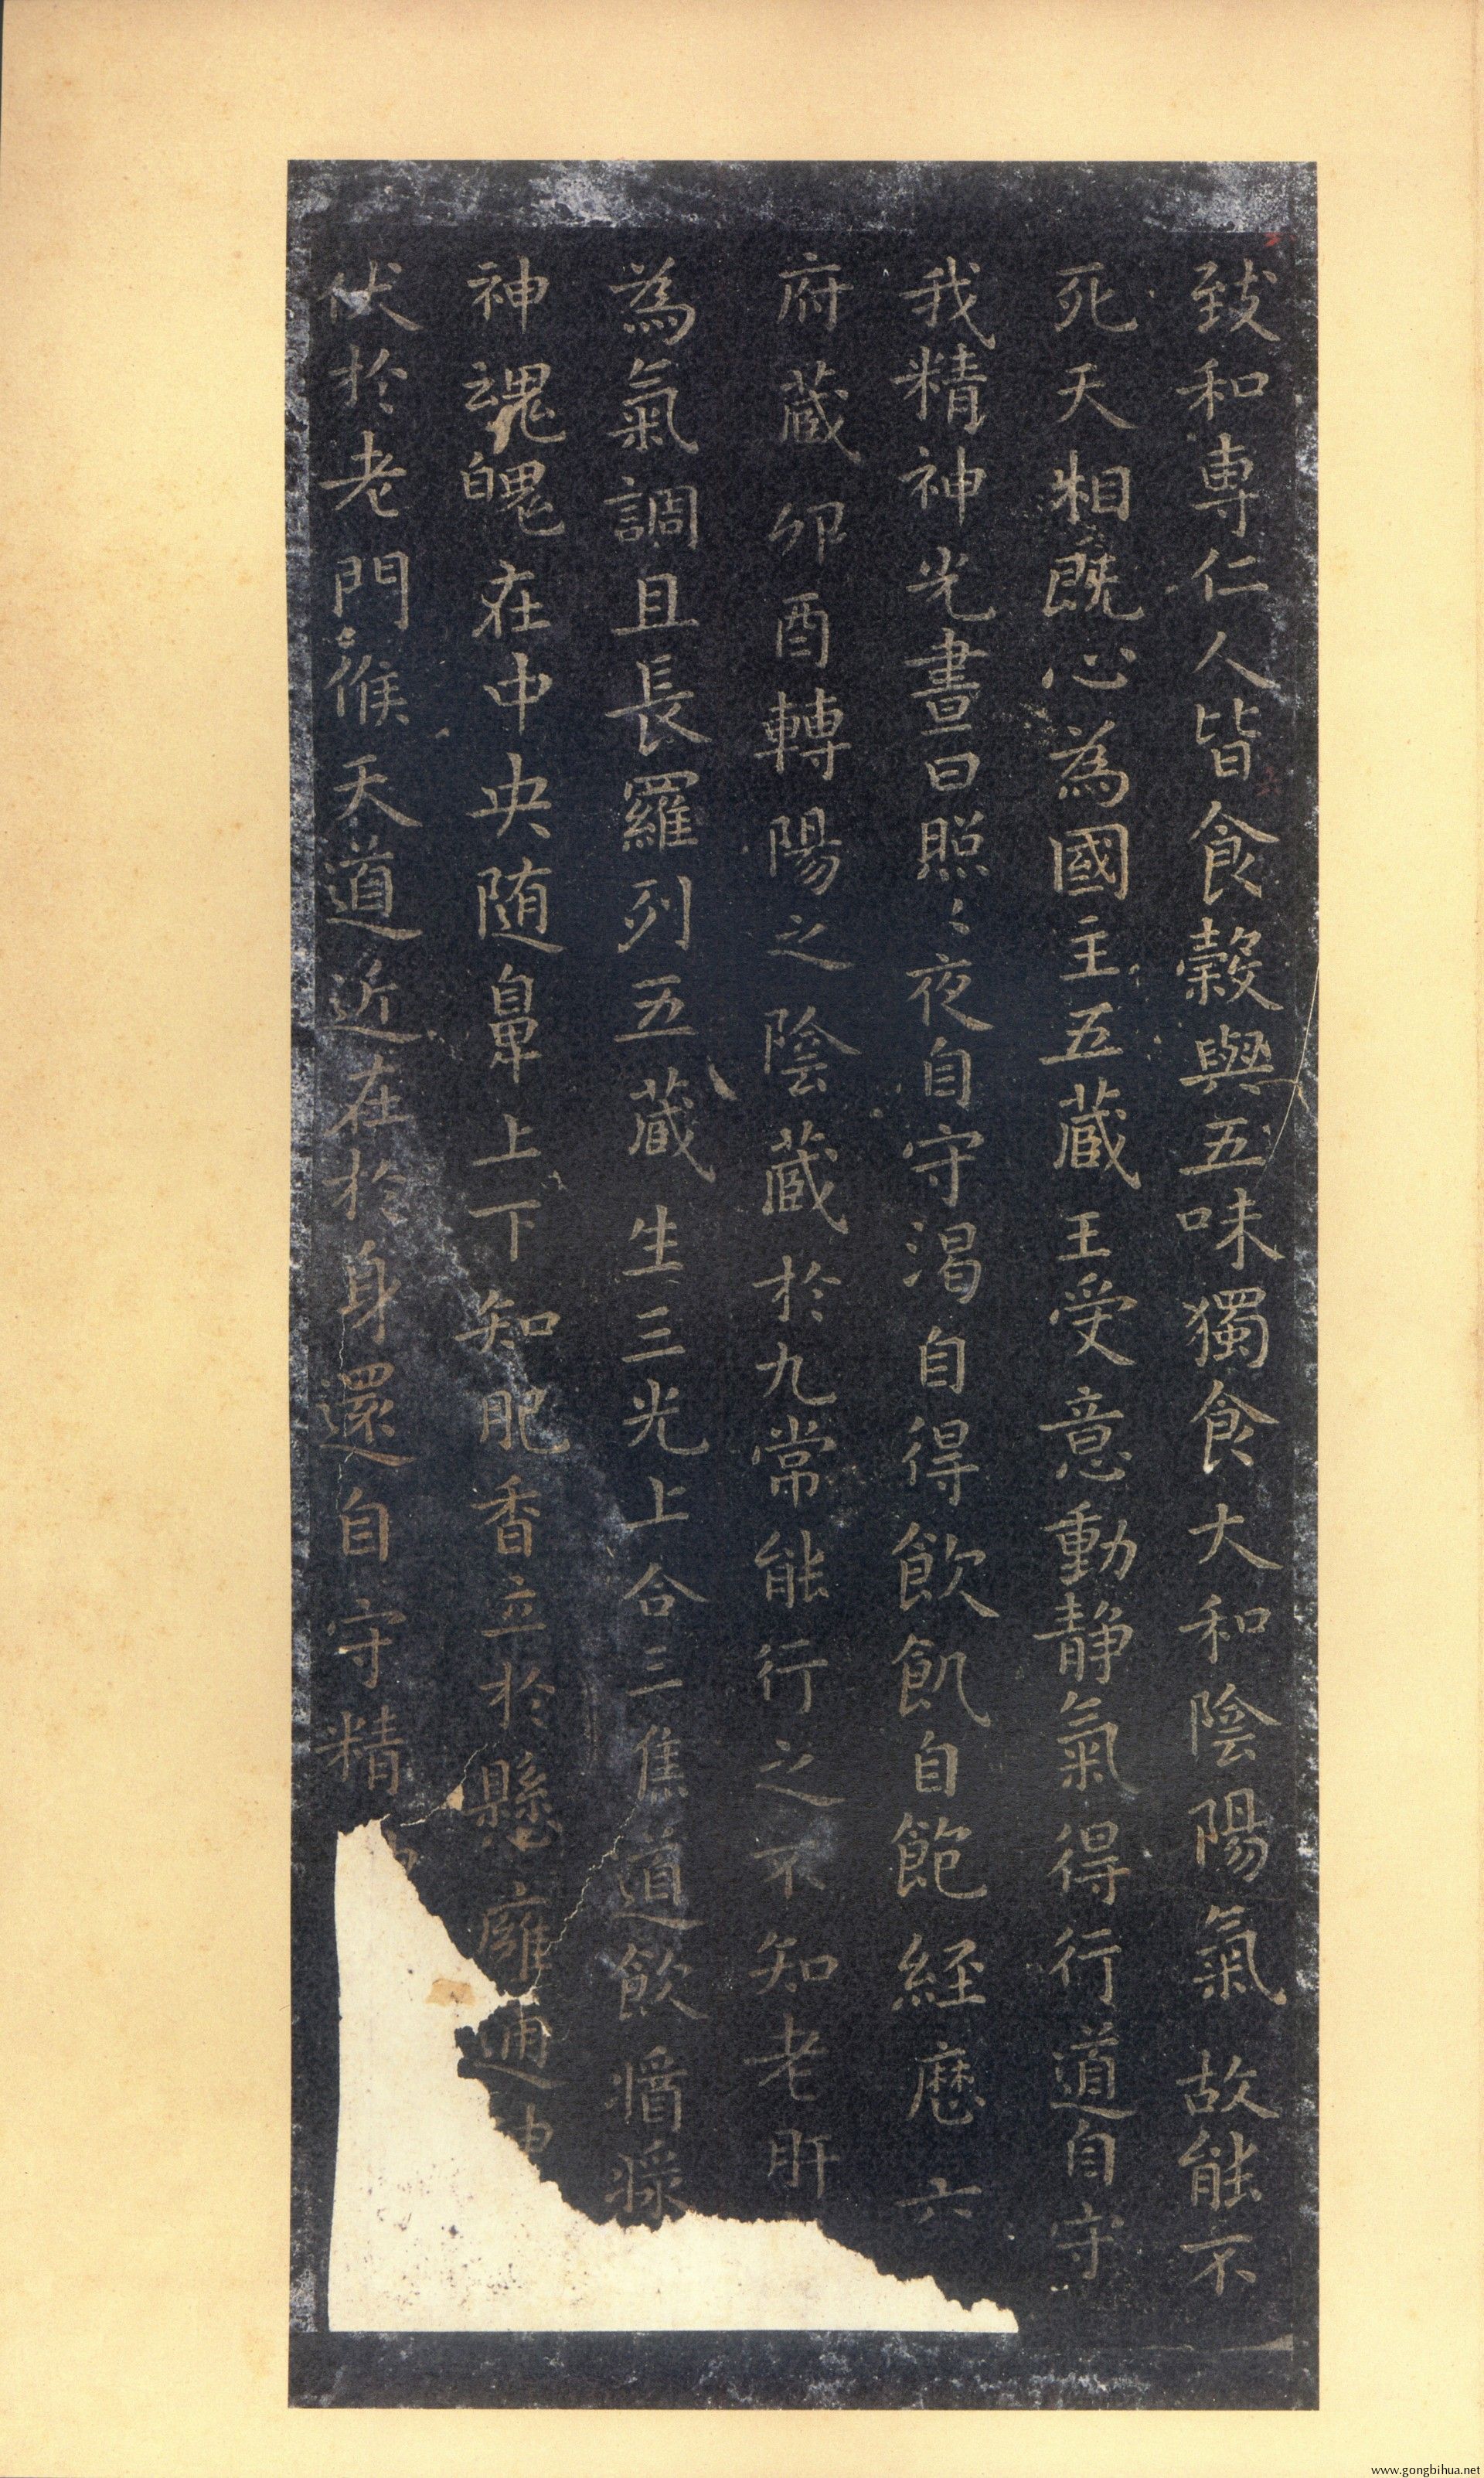 致和專仁人皆食穀與五味獨食大和陰陽氣故能不
死天相既心為國主五蔵王受意動静氣得行道自守
我精神光晝日照〻夜自守渴自得飲飢自飽経歷六
府蔵卯酉轉陽之陰蔵於九常能行之不知老肝
為氣調且長羅列五蔵生三光上合三焦道飲
神魂魄在中央随鼻上下知肥香立於懸廱通神
伏於老門候天道近在於身還自守精
www.gongbihua.net